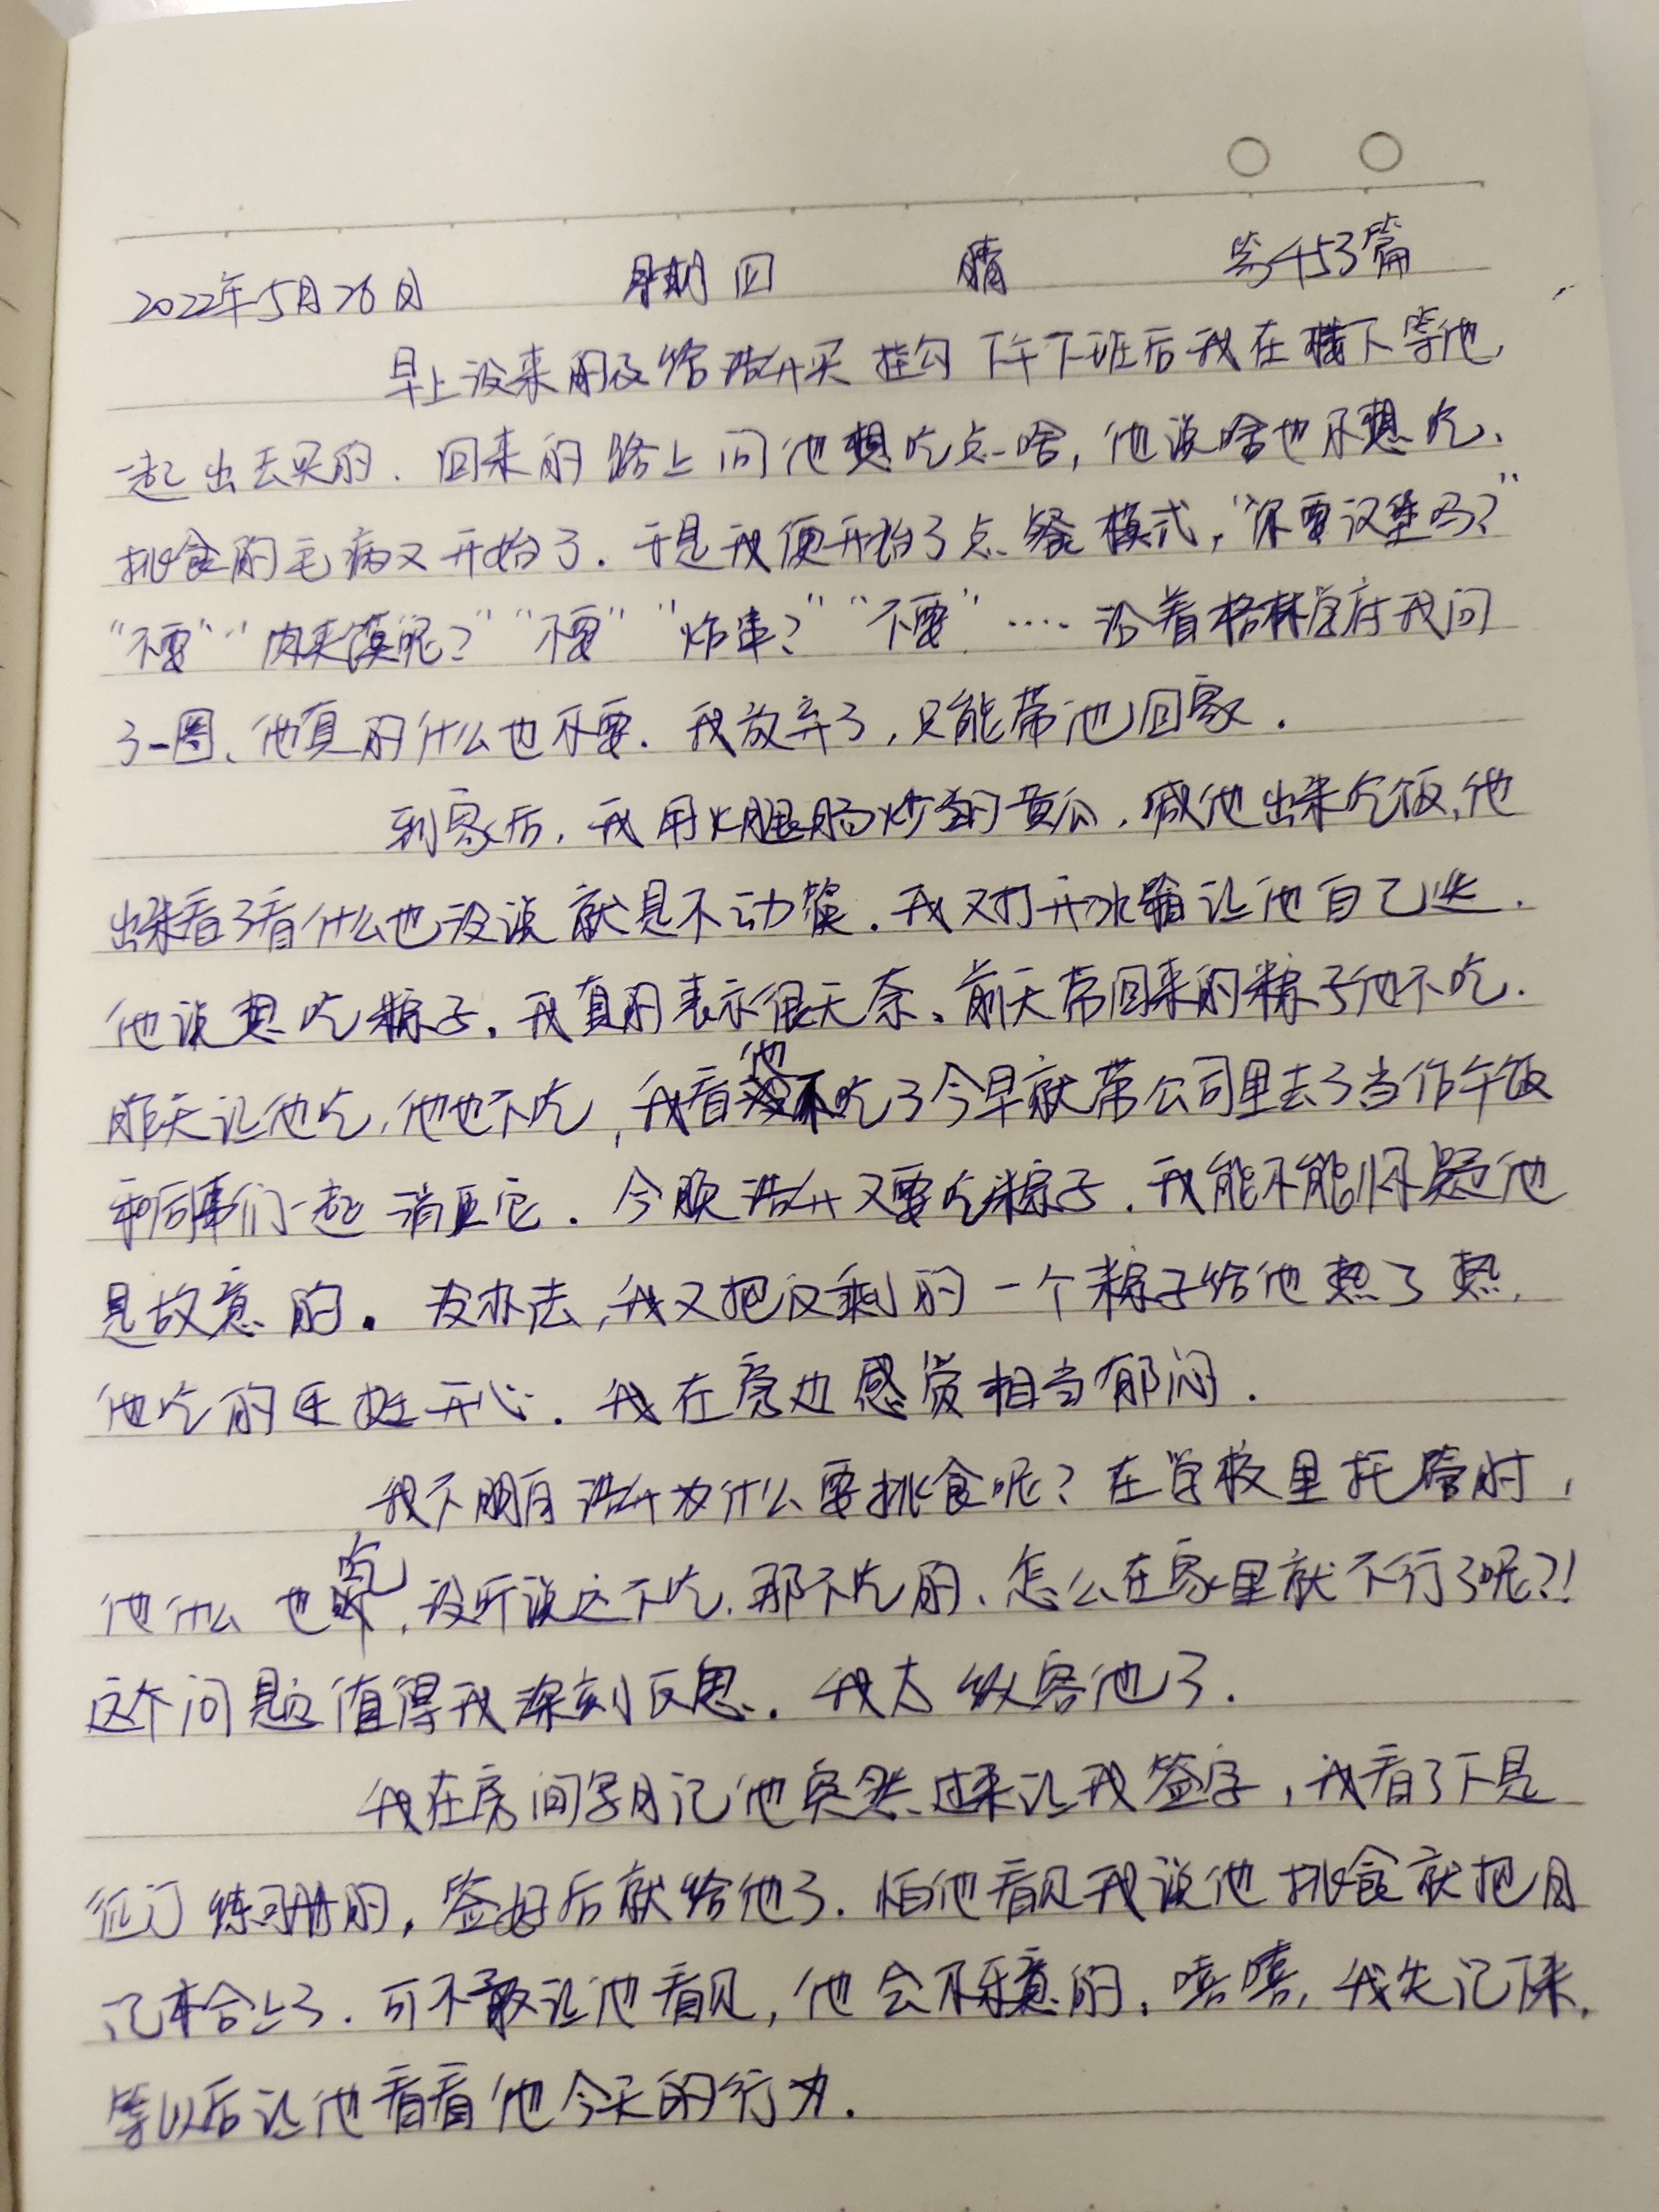 2022年5月26日 星期四 晴 第453篇
早上没来的及给浩升买挂勾 下午下班后我在楼下等他,
一起出去买的. 回来的路上问他想吃点啥,他说啥也不想吃、
挑食的毛病又开始了. 于是我便开始了点餐模式,"你要汉堡吗?"
"不要""肉夹馍呢?""不要""炸串?""不要"····沿着格林学府我问
了一圈、他真的什么也不要. 我放弃了,只能带他回家.
到家后,我用火腿肠炒的黄瓜,喊他出来吃饭,他
出来看了看什么也没说就是不动筷. 我又打开冰箱让他自己选.
他说想吃粽子. 我真的表示很无奈、前天带回来的粽子他不吃.
昨天让他吃,他也不吃,我看他不吃了今早就带公司里去了当作午饭
和同事们一起消灭它. 今晚浩升又要吃粽子. 我能不能怀疑他
是故意的. 没办法,我又把仅剩的一个粽子给他热了热,
他吃的还挺开心. 我在旁边感觉相当郁闷.
我不明白浩升为什么要挑食呢?在学校里托管时,
他什么也吃,没听说这不吃,那不吃的、怎么在家里就不行了呢?!
这个问题值得我深刻反思. 我太纵容他了.
我在房间写日记他突然过来让我签字,我看了下是
征订练习册的,签好后就给他了. 怕他看见我说他挑食就把日
记本合上了. 可不敢让他看见,他会不乐意的. 嘻嘻,我先记下来,
等以后让他看看他今天的行为.